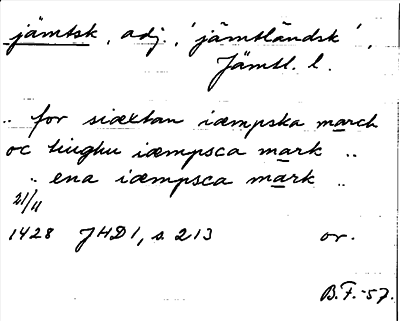 jämtsk, adj. 'jämtländsk',
Jämtl. l.
.. for siæxtan iæmpska march
oc tiughu iæmpsca mark ..
.. ena iæmpsca mark ..
21/11
1428 JHD 1, s. 213 or.
B.F. -57.